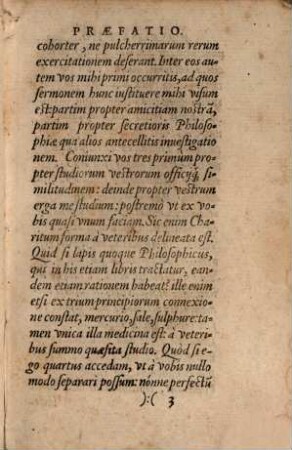 PRÆFATIO.
cohorter, ne pulcherrimarum rerum
exercitationem deserant. Inter eos au
tem vos mihi primi occurritis, ad quos
sermonem hunc iustituere mihi visum
est: partim propter amicitiam nostrã,
partim propter secretioris Philoso-
phiæ qua alios antecellitis inuestigatio
nem. Coniunxi vos tres primùm pro-
pter studiorum vestrorum officijq́; si-
militudinem: deinde propter vestrum
erga me studium: postremò vt ex vo-
bis quasi vnum faciam. Sic enim Cha-
ritum forma à veteribus delineata est.
Quid si lapis quoque Philosophicus,
qui in his etiam libris tractatur, ean-
dem etiam rationem habeat? ille enim
etsi ex trium principiorum connexio-
ne constat, mercurio, sale, sulphure: ta-
men vnica illa medicina est: à veteri-
bus summo quæsita studio. Quòd si e-
go quartus accedam, vt à vobis nullo
modo separari possum: nónne perfectũ
):( 3